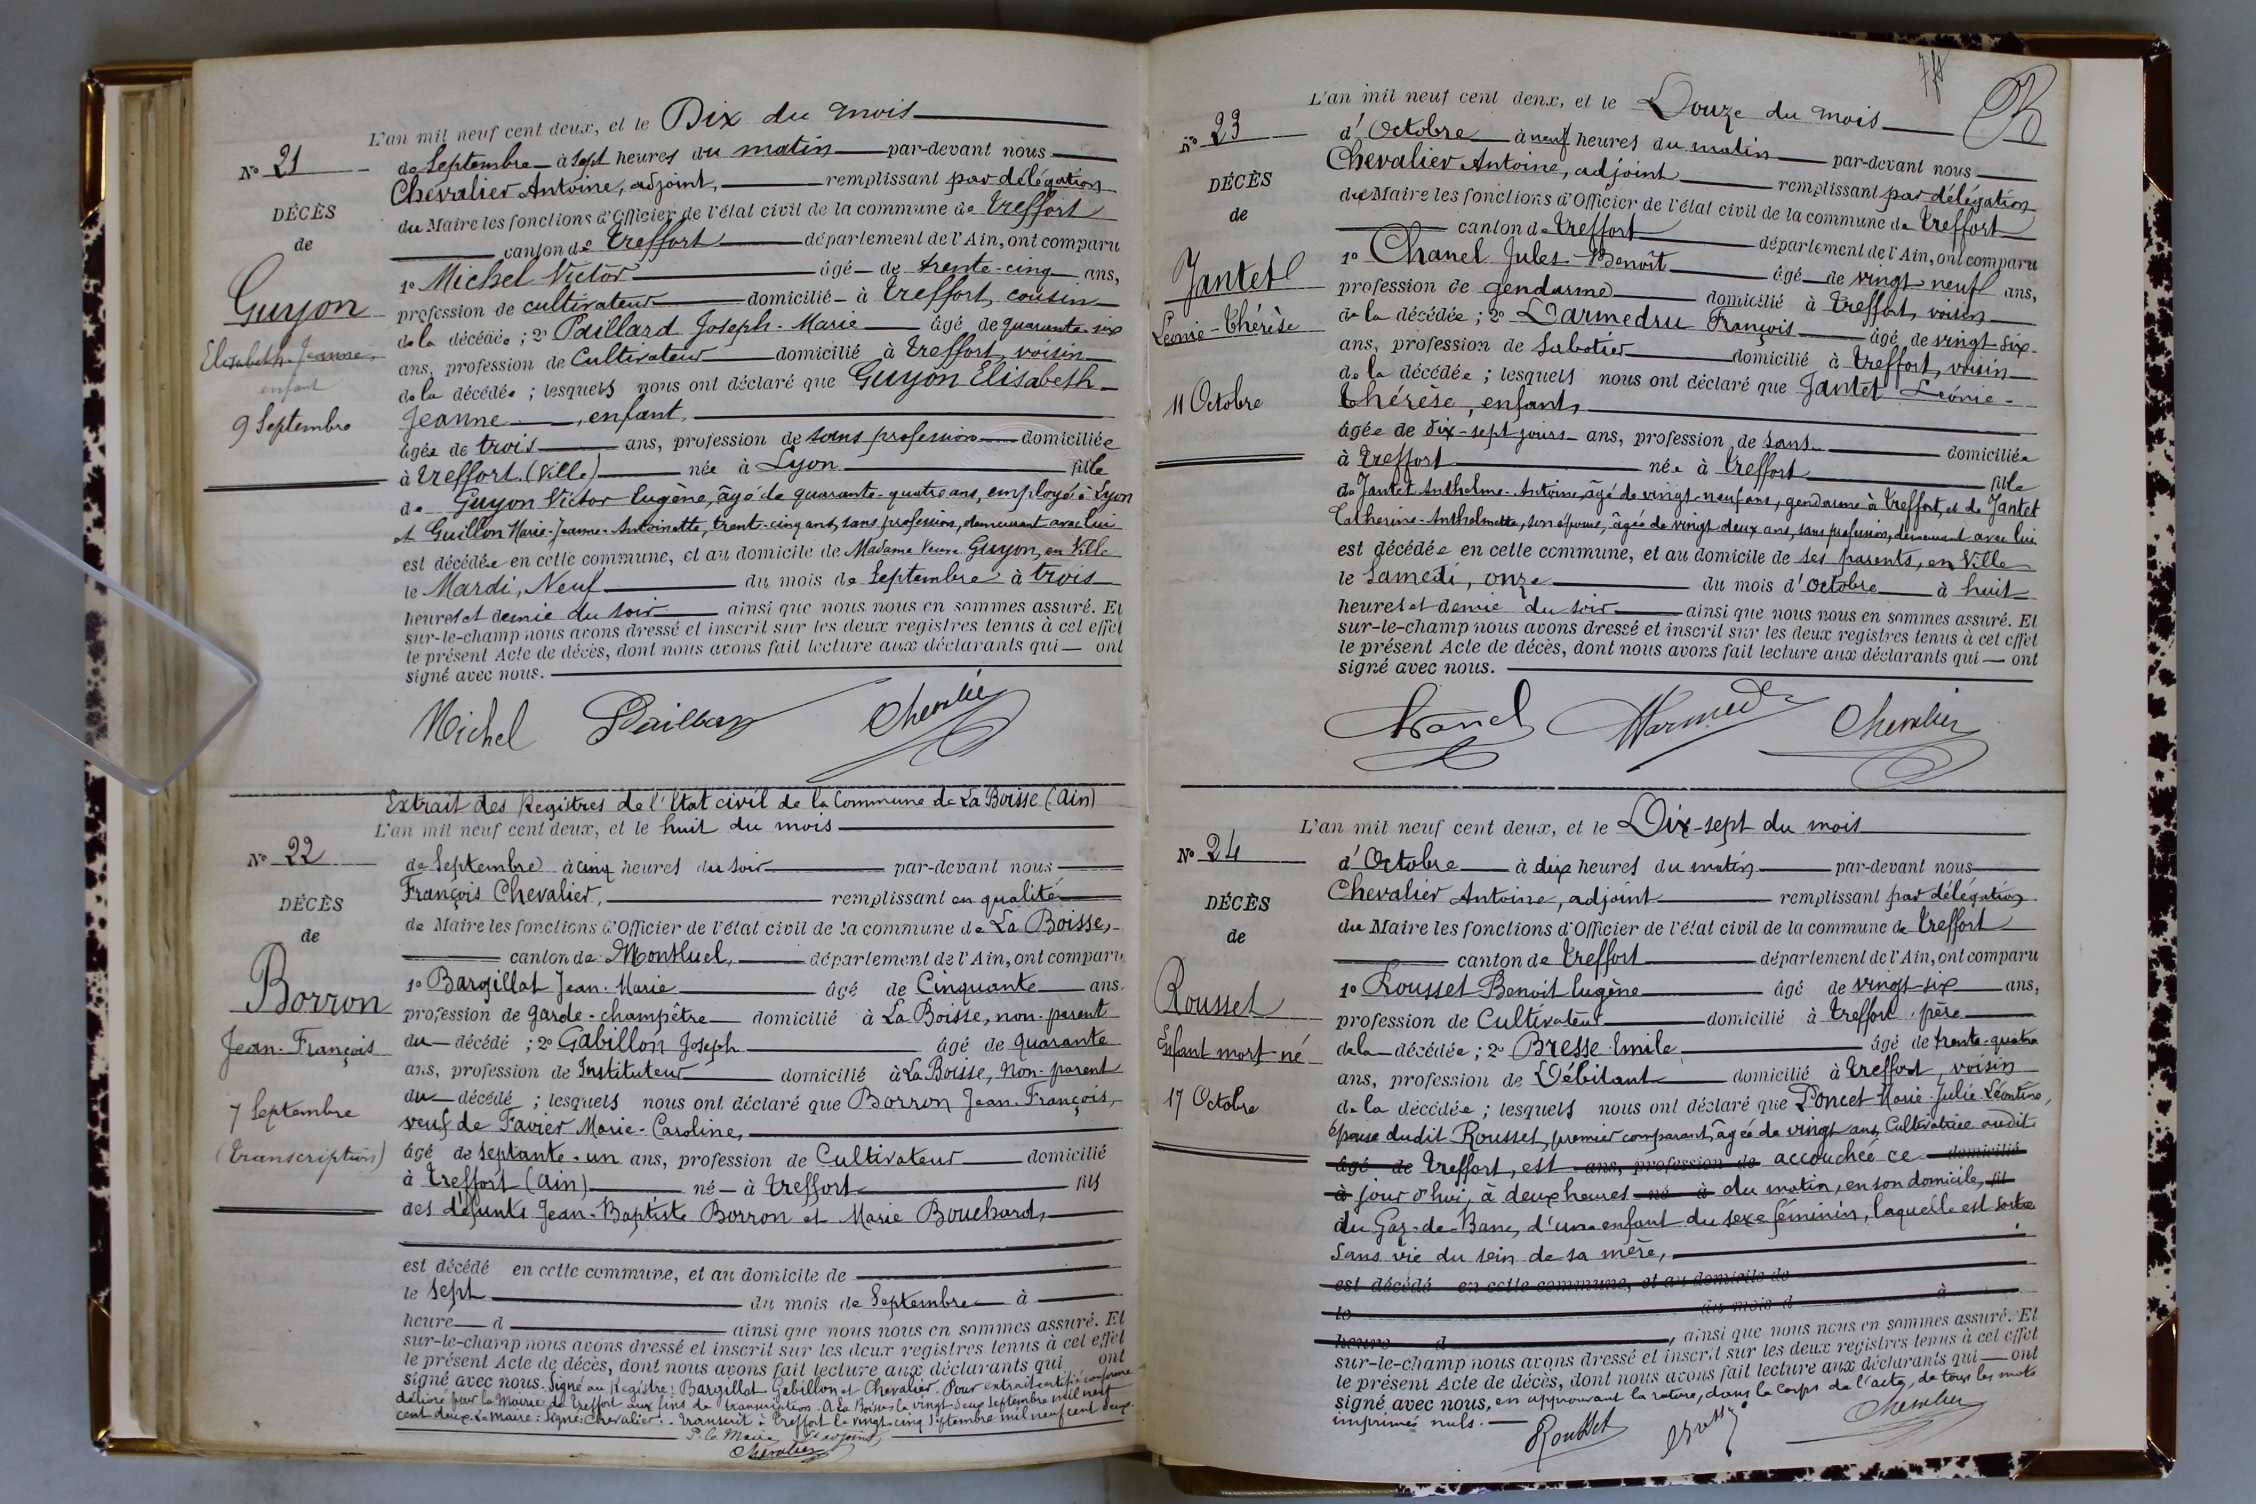 L'an mil neuf cent deux, et le Dix du mois
N° 21
de Septembre à sept heures du matin par-devant nous
Chevalier Antoine, adjoint, remplissant par délégation
DÉCÈS
du Maire les fonctions d'Officier de l'état civil de la commune de Treffort
de
canton de Treffort département de l'Ain, ont comparu
1° Michel Victor âgé de trente-cinq ans,
Guyon
profession de cultivateur domicilié à Treffort, cousin
de la décédée ; 2° Paillard Joseph-Marie âgé de quarante-six
Elisabeth-Jeanne,
ans, profession de Cultivateur domicilié à Treffort, voisin
enfant
de la décédée ; lesquels nous ont déclaré que Guyon Elisabeth-
9 Septembre
Jeanne, enfant,
âgée de trois ans, profession de sans profession domiciliée
à Treffort (Ville) née à Lyon fille
de Guyon Victor Eugène, âgé de quarante-quatre ans, employé à Lyon
et Guillon Marie-Jeanne-Antoinette, trente-cinq ans, sans profession, demeurant avec lui
est décédée en cette commune, et au domicile de Madame Veuve Guyon, en Ville
le Mardi, Neuf du mois de Septembre à trois
heures et demie du soir ainsi que nous nous en sommes assuré. Et
sur-le-champ nous avons dressé et inscrit sur les deux registres tenus à cet effet
le présent Acte de décès, dont nous avons fait lecture aux déclarants qui ont
signé avec nous.
Michel Paillard Chevalier
Extrait des Registres de l'Etat civil de la Commune de La Boisse (Ain)
L'an mil neuf cent deux, et le huit du mois
N° 22
de Septembre à cinq heures du soir par-devant nous
François Chevalier, remplissant en qualité
DÉCÈS
de Maire les fonctions d'Officier de l'état civil de la commune de La Boisse,
de
canton de Montluel, département de l'Ain, ont comparu
Borron
1° Bargillat Jean-Marie âgé de Cinquante ans.
profession de garde-champêtre domicilié à La Boisse, non-parent
Jean-François
du décédé ; 2° Gabillon Joseph âgé de quarante
ans, profession de Instituteur domicilié à La Boisse, Non-parent
7 Septembre
du décédé ; lesquels nous ont déclaré que Borron Jean-François,
veuf de Favier Marie-Caroline,
(Transcription)
âgé de septante-un ans, profession de Cultivateur domicilié
à Treffort (Ain) né à Treffort fils
des défunts Jean-Baptiste Borron et Marie Bouchard,
est décédé en cette commune, et au domicile de
le sept du mois de Septembre à
heure d ainsi que nous nous en sommes assuré. Et
sur-le-champ nous avons dressé et inscrit sur les deux registres tenus à cet effet
le présent Acte de décès, dont nous avons fait lecture aux déclarants qui ont
signé avec nous. Signé au Registre : Bargillat Gabillon et Chevalier. Pour extrait certifié conforme
délivré par la Mairie de Treffort aux fins de transcription. A La Boisse le vingt deux Septembre mil neuf
cent deux. Le Maire : Signé : Chevalier. Transcrit à Treffort le vingt-cinq Septembre mil neuf cent deux.
P. le Maire L'adjoint,
Chevalier
74
L'an mil neuf cent deux, et le Douze du mois
N° 23
d'Octobre à neuf heures du matin par-devant nous
Chevalier Antoine, adjoint remplissant par délégation
DÉCÈS
du Maire les fonctions d'Officier de l'état civil de la commune de Treffort
de
canton de Treffort département de l'Ain, ont comparu
1° Chanel Jules-Benoît âgé de vingt-neuf ans,
Jantet
profession de gendarme domicilié à Treffort, voisin
Léonie-Thérèse
de la décédée ; 2° Darmedru François âgé de vingt-six
ans, profession de Sabotier domicilié à Treffort, voisin
de la décédée ; lesquels nous ont déclaré que Jantet Léonie-
11 Octobre
Thérèse, enfant,
âgée de dix-sept jours ans, profession de sans domiciliée
à Treffort née à Treffort fille
de Jantet Anthelme-Antoine, âgé de vingt-neuf ans, gendarme à Treffort, et de Jantet
Catherine-Anthelmette, son épouse, âgée de vingt-deux ans, sans profession, demeurant avec lui
est décédée en cette commune, et au domicile de ses parents, en Ville
le Samedi, onze du mois d'octobre à huit
heures et demie du soir ainsi que nous nous en sommes assuré. Et
sur-le-champ nous avons dressé et inscrit sur les deux registres tenus à cet effet
le présent Acte de décès, dont nous avons fait lecture aux déclarants qui ont
signé avec nous.
Chanel Darmedru Chevalier
L'an mil neuf cent deux, et le Dix-sept du mois
N° 24
d'Octobre à dix heures du matin par-devant nous
Chevalier Antoine, adjoint remplissant par délégation
DÉCÈS
du Maire les fonctions d'Officier de l'état civil de la commune de Treffort
de
canton de Treffort département de l'Ain, ont comparu
Rousset
1° Rousset Benoit Eugène âgé de vingt-six ans,
profession de Cultivateur domicilié à Treffort, père
Enfant mort-né
de la décédée ; 2° Bresse Emile âgé de trente-quatre
ans, profession de Débitant domicilié à Treffort, voisin
17 Octobre
de la décédée ; lesquels nous ont déclaré que Poncet Marie-Julie Léontine,
épouse dudit Rousset, premier comparant, âgée de vingt ans, Cultivatrice audit
âgé de Treffort, est ans, profession de accouchée ce domicilié
à jour d'hui, à deux heures né à du matin, en son domicile, fil
du Gaz-de-Banc, d'une enfant du sexe féminin, laquelle est sortie
sans vie du sein de sa mère,
est décédé en cette commune, et au domicile de
le du mois d à
heure d, ainsi que nous nous en sommes assuré. Et
sur-le-champ nous avons dressé et inscrit sur les deux registres tenus à cet effet
le présent Acte de décès, dont nous avons fait lecture aux déclarants qui ont
signé avec nous, en approuvant la rature, dans le corps de l'acte, de tous les mots
imprimés nuls.
Rousset Bresse Chevalier